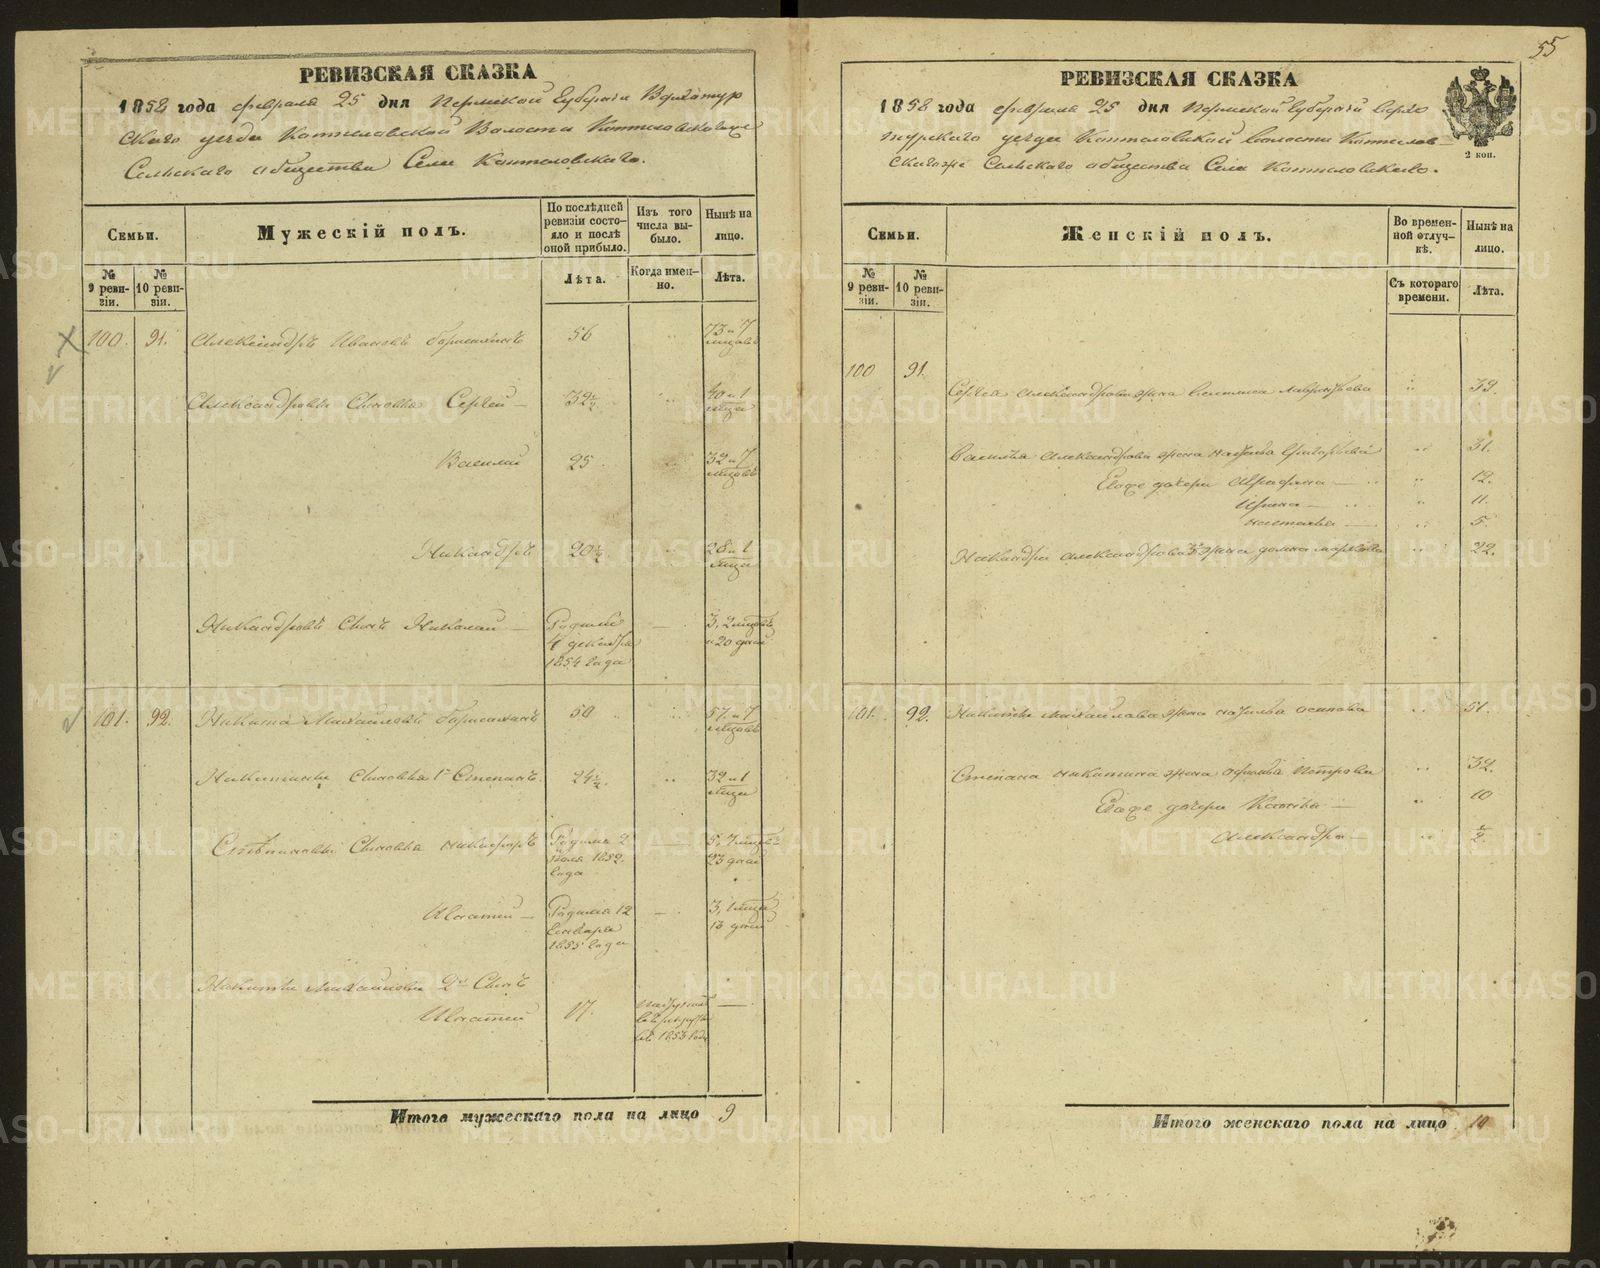 55
РЕВИЗСКАЯ СКАЗКА
1858 года февраля 25 дня Пермской Губернии Верхотур
скаго уезда Коптеловской Волости Коптеловскагоже
Сельскаго общества Села Коптеловскаго.
Семьи.
Мужескій полъ.
По послѣдней ревизіи состояло и послѣ оной прибыло.
Изъ того числа выбыло.
Нынѣ на лицо.
№ 9 ревизіи.
№ 10 ревизіи.
Лѣта.
Когда именно.
Лѣта.
100. 91. Александръ Ивановъ 56 73 и 7 месяцовъ
Александровы Сыновья Сергей — 32½ 40 и 1 месяц
Василий 25 32 и 7 месяцовъ
Никандръ 20½ 28 и 1 месяц
Никандровъ Сынъ Николай — Родился 4 декабря 1854 года — 3, 2 месяцовъ и 20 дней
101. 92. Никита Михайловъ 50 57 и 7 месяцовъ
Никитины Сыновья 1й Степанъ 24½ 32 и 1 месяц
Степановы Сыновья Никифоръ Родился 2 июля 1852 года — 5, 7 месяцовъ 23 дней
Игнатей — Родился 12 Генваря 1855 года — 3, 1 месяц 13 дней
Никиты Михайлова 2й Сынъ
Игнатей 17. в рекруты въ 1853 году —
Итого мужескаго пола на лицо 9
РЕВИЗСКАЯ СКАЗКА
2 коп.
1858 года февраля 25 дня Пермской Губерній Верхо
турскаго уезда Коптеловской Волости Коптелов—
скагоже Сельскаго общества Села Коптеловскаго.
Семьи.
Женскій полъ.
Во временной отлучкѣ.
Нынѣ на лицо.
№ 9 ревизіи.
№ 10 ревизіи.
Съ котораго времени.
Лѣта.
100 91.
Сергея Александрова жена 39.
Василья Александрова жена Григорьева 31.
Егоже дочери Аграфена — 12.
Ирина — 11.
Наталья — 5.
Никандра Александрова жена Домна Маркова 22.
101. 92. Никиты Михайлова жена Осипова 51.
Степана Никитина жена Афимья Петрова 32.
Егоже дочери — 10
Александра — ½
Итого женскаго пола на лицо 10
METRIKI.GASO-URAL.RU